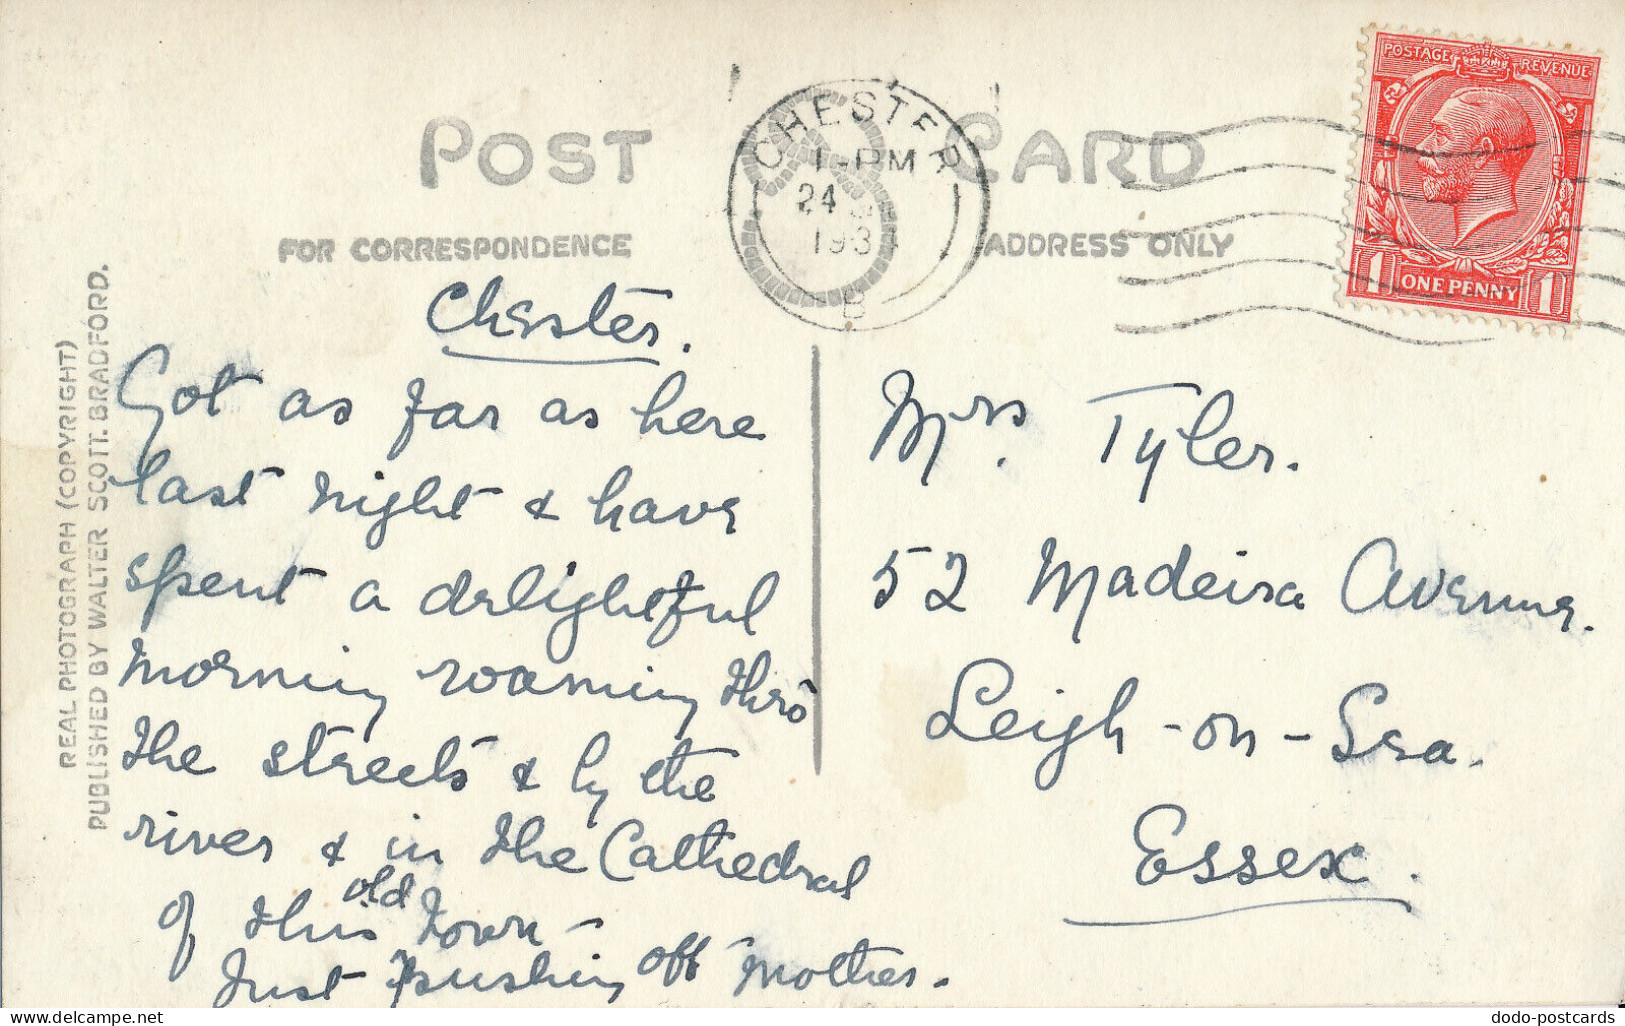 POST CARD
FOR CORRESPONDENCE
ADDRESS ONLY
CHESTER
1-PM
24
193
B
POSTAGE REVENUE
1 ONE PENNY 1
REAL PHOTOGRAPH (COPYRIGHT)
PUBLISHED BY WALTER SCOTT. BRADFORD.
Chester.
Got as far as here
last night & have
spent a delightful
morning roaming thro
the streets & by the
river & in the Cathedral
of this old Town
Just pushing off Mother.
Mrs. Tyler.
52 Madeira Avenue.
Leigh-on-Sea.
Essex.
delcampe.net
dodo-postcards